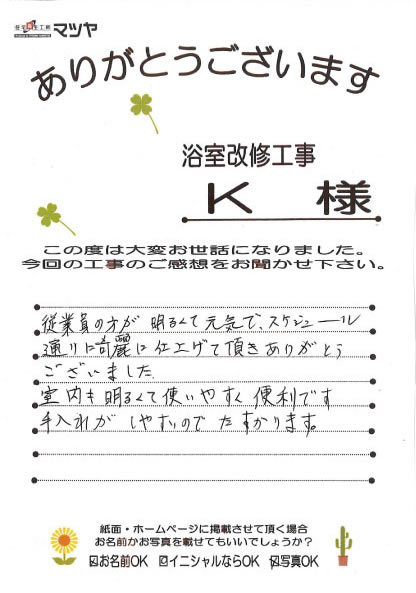 マツヤ
ありがとうございます
浴室改修工事
K 様
この度は大変お世話になりました。
今回の工事のご感想をお聞かせ下さい。
従業員の方が 明るくて元気で、スケジュール
通りに綺麗に仕上げて頂きありがとう
ございました。
室内も明るくて使いやすく便利です
手入れが しやすいので たすかります。
紙面・ホームページに掲載させて頂く場合
お名前かお写真を載せてもいいでしょうか?
☑お名前OK ☑イニシャルならOK ☑写真OK